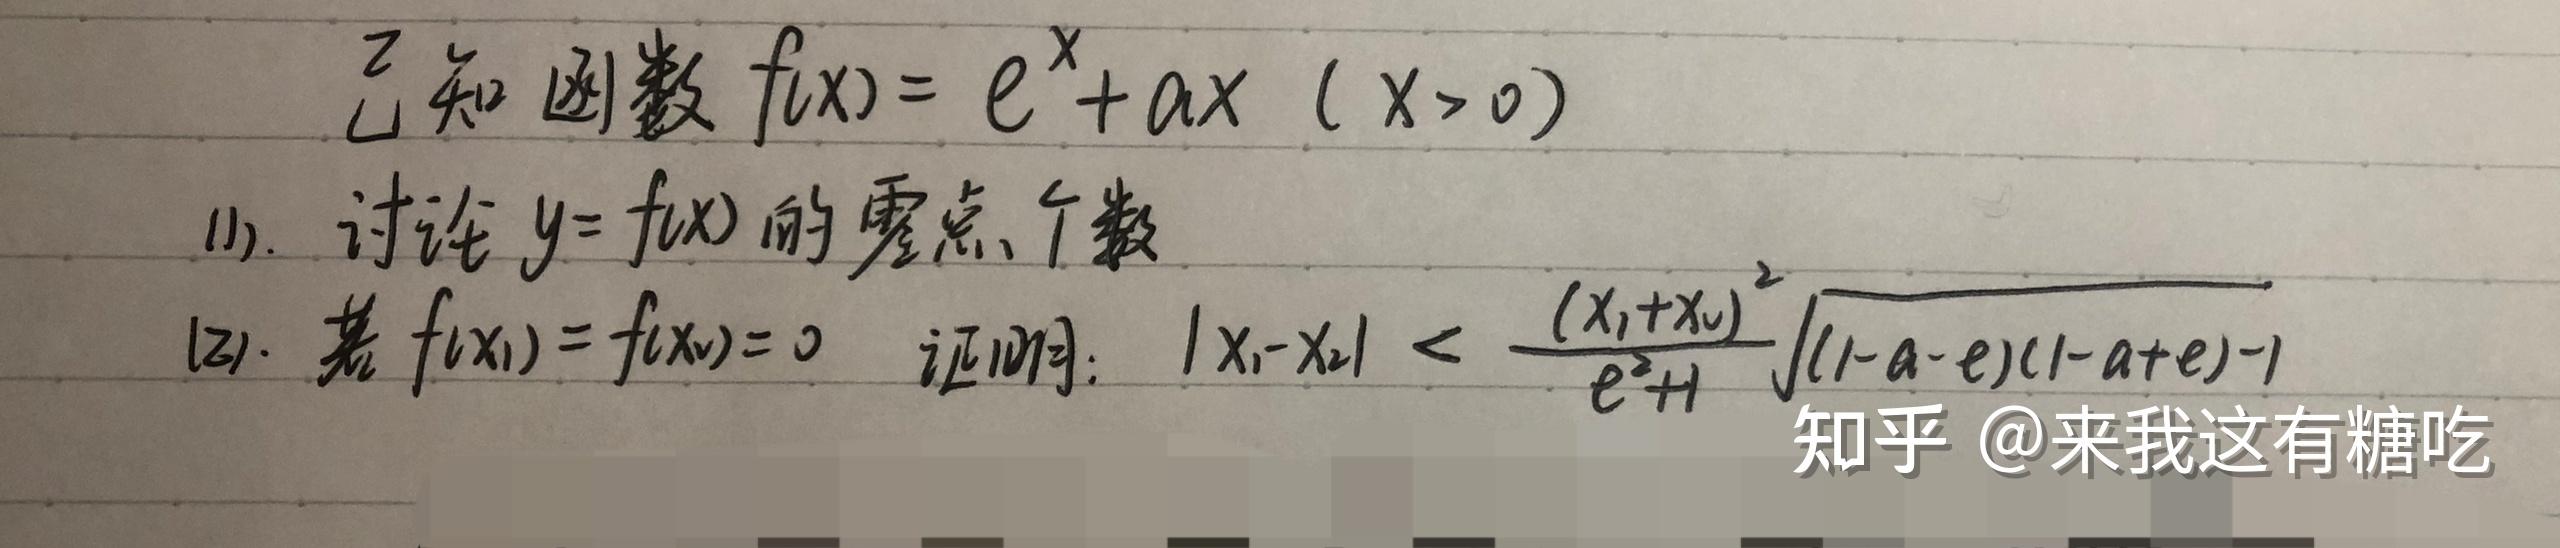 已知函数 f(x) = e^x + ax ( x > 0 )
(1). 讨论 y = f(x) 的零点个数
(2). 若 f(x₁) = f(x₂) = 0 证明: |x₁-x₂| < (x₁+x₂)²/(e²+1) √((1-a-e)(1-a+e)-1)
知乎 @来我这有糖吃